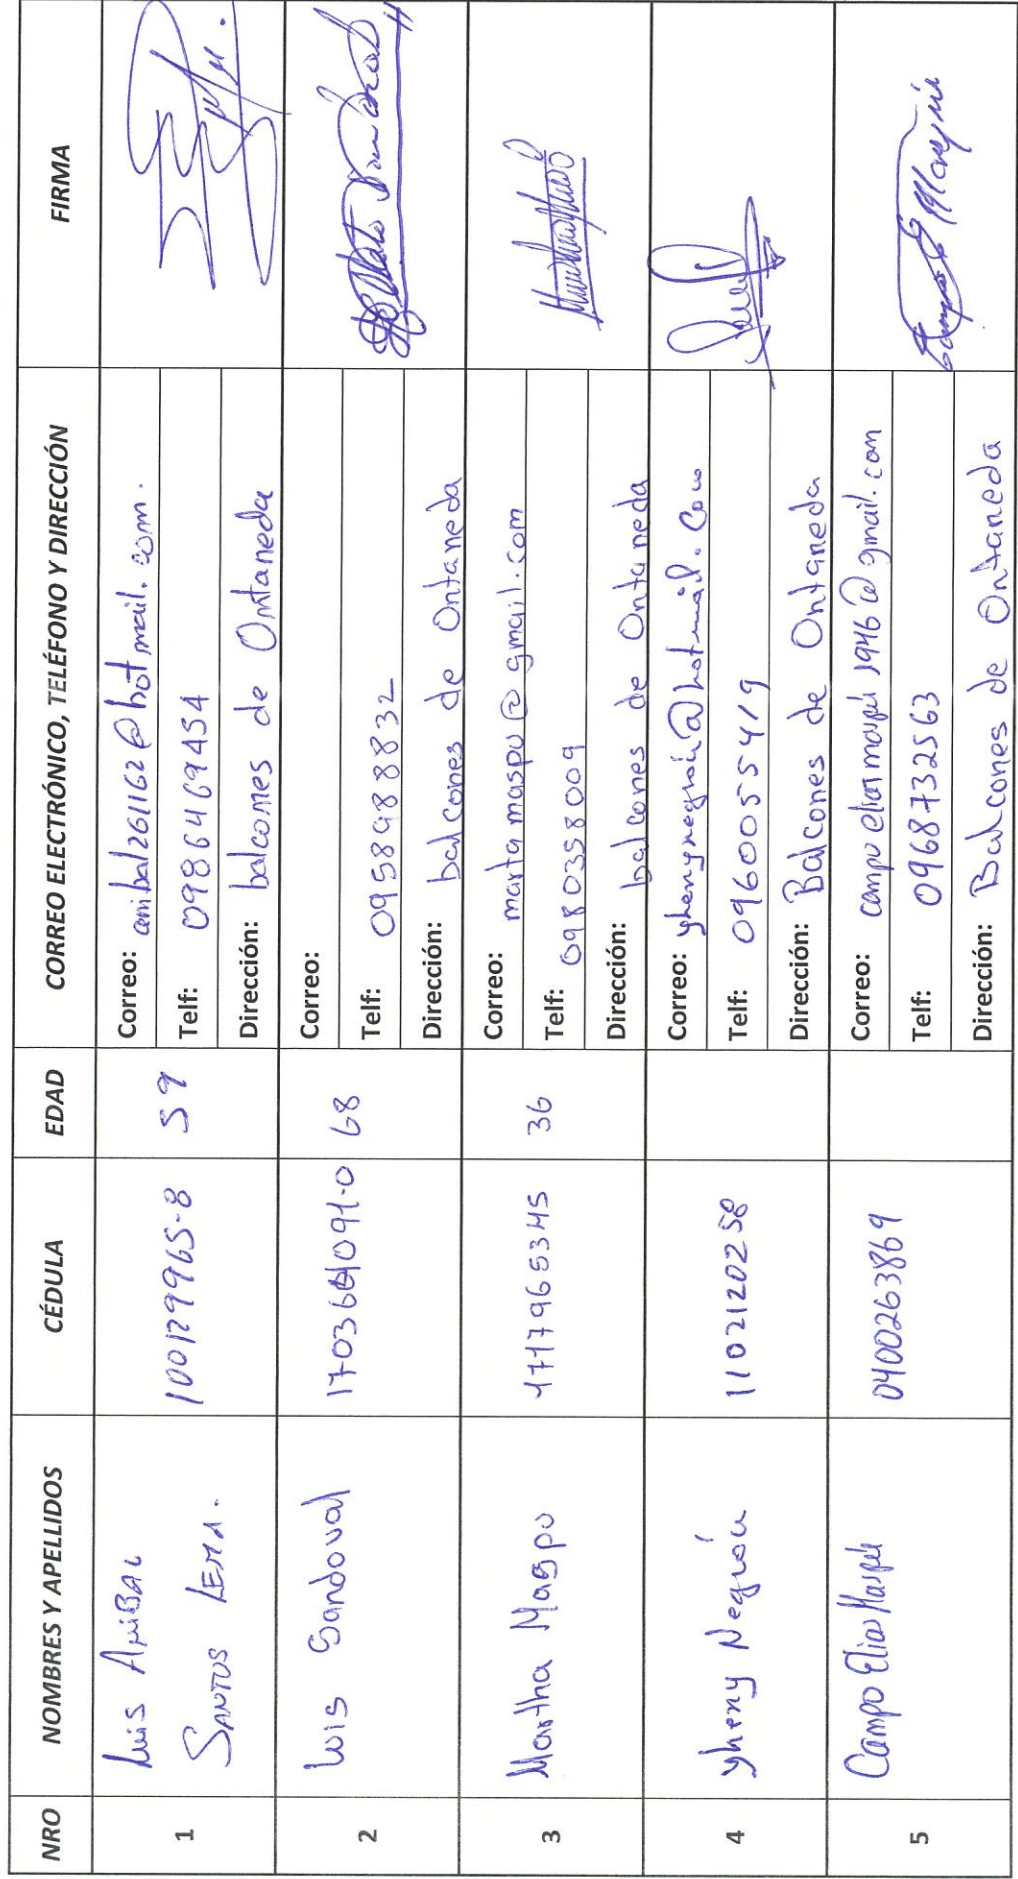 NRO NOMBRES Y APELLIDOS CÉDULA EDAD CORREO ELECTRÓNICO, TELÉFONO Y DIRECCIÓN FIRMA
1
Luis Anibal
Santos Lema.
100129965-8
59
Correo: anibal261162@hotmail.com.
Telf: 0986469454
Dirección: balcones de Ontaneda
2
Luis Sandoval
68
Correo:
Telf: 0958988832
Dirección: balcones de Ontaneda
3
Martha Maspu
1717965345
36
Correo: martamaspu@gmail.com
Telf: 0980358009
Dirección: balcones de Ontaneda
4
yheny Negrón
1102120258
Correo: yhenynegron@hotmail.com
Telf: 0960055419
Dirección: Balcones de Ontaneda
5
Campo Elias Maspú
0400263869
Correo: campo eliasmaspú1946@gmail.com
Telf: 0968732563
Dirección: Balcones de Ontaneda